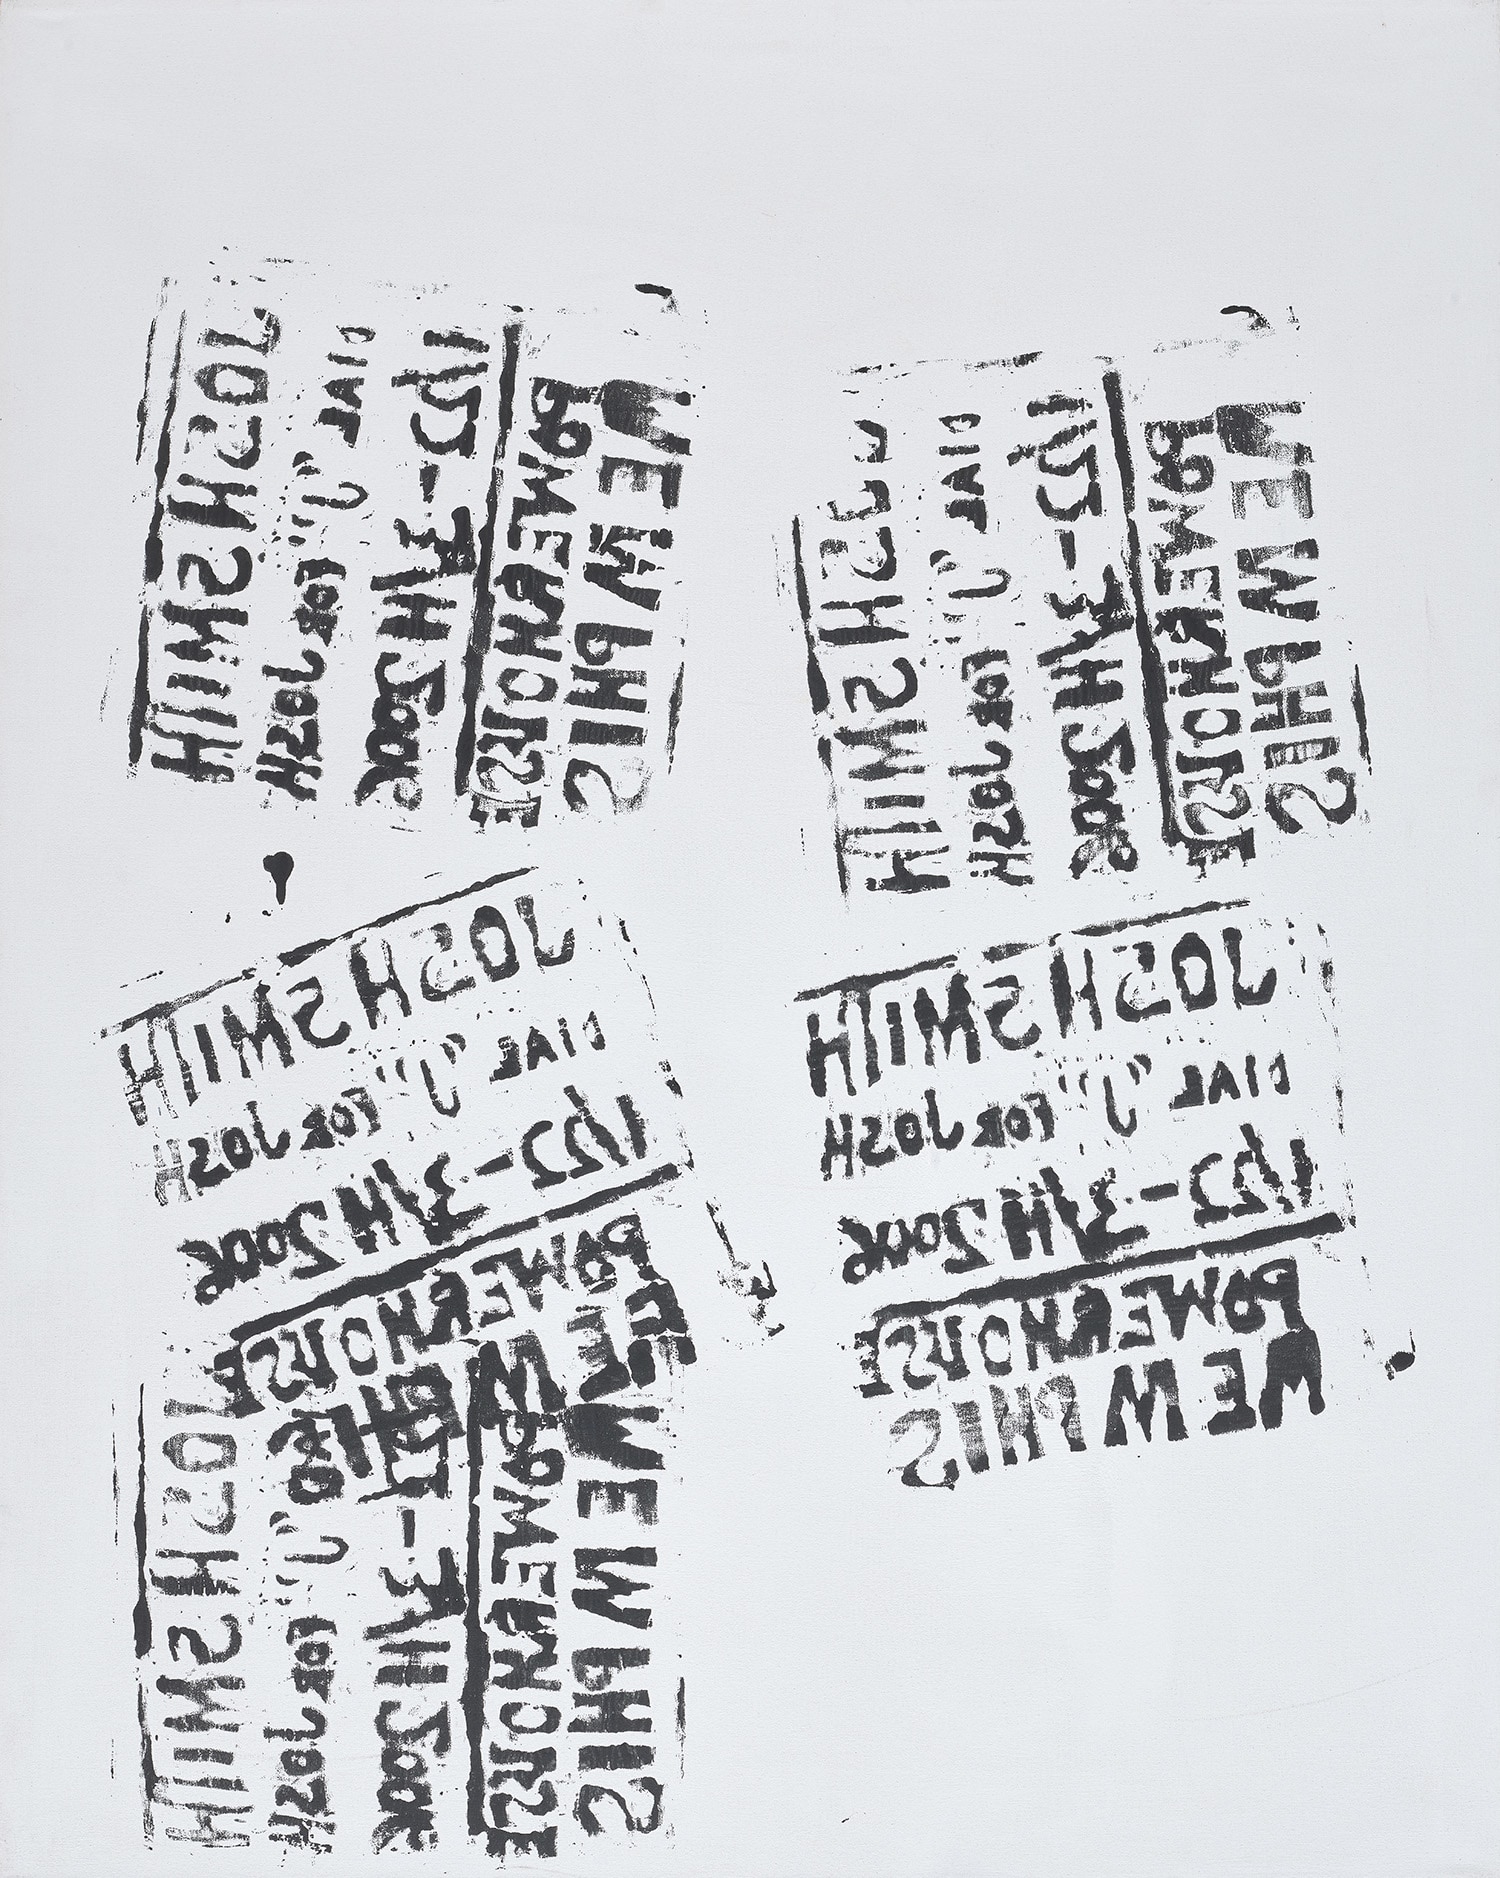 JOSH SMITH
DIAL "J" FOR JOSH
1/22-3/4 2006
POWERHOUSE
MEMPHIS
JOSH SMITH
DIAL "J" FOR JOSH
1/22-3/4 2006
POWERHOUSE
MEMPHIS
JOSH SMITH
DIAL "J" FOR JOSH
1/22-3/4 2006
POWERHOUSE
MEMPHIS
JOSH SMITH
DIAL "J" FOR JOSH
1/22-3/4 2006
POWERHOUSE
MEMPHIS
JOSH SMITH
"J" FOR JOSH
-3/4 2006
POWERHOUSE
MEMPHIS